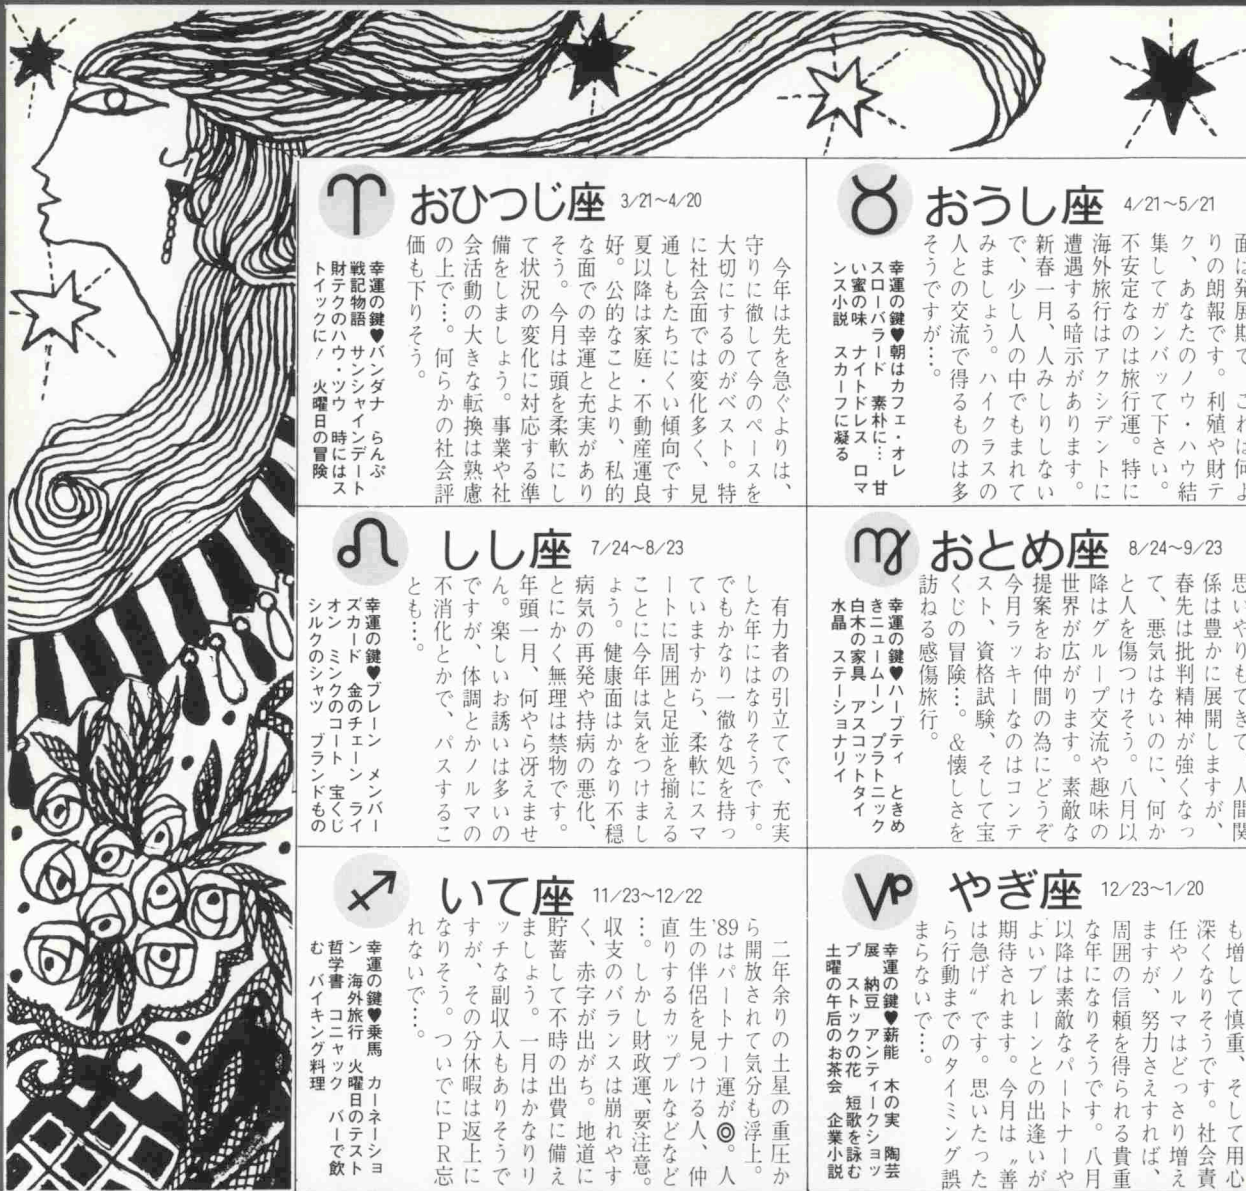 おひつじ座 3/21~4/20
今年は先を急ぐよりは、
守りに徹して今のペースを
大切にするのがベスト。特
に社会面では変化多く、見
通しもたちにくい傾向です
夏以降は家庭・不動産運良
好。公的なことより、私的
な面での幸運と充実があり
そう。今月は頭を柔軟にし
て状況の変化に対応する準
備をしましょう。事業や社
会活動の大きな転換は熟慮
の上で…。何らかの社会評
価も下りそう。
幸運の鍵♥バンダナ らんぷ
戦記物語 サンシャインデート
財テクのハウ・ツウ 時にはス
トイックに! 火曜日の冒険
おうし座 4/21~5/21
りの朗報です。利殖や財テ
ク、あなたのノウ・ハウ結
集してガンバッて下さい。
不安定なのは旅行運。特に
海外旅行はアクシデントに
遭遇する暗示があります。
新春一月、人みしりしない
で、少し人の中でもまれて
みましょう。ハイクラスの
人との交流で得るものは多
そうですが…。
幸運の鍵♥朝はカフェ・オレ
スローバラード 素朴に… 甘
い蜜の味 ナイトドレス ロマ
ンス小説 スカーフに凝る
しし座 7/24~8/23
有力者の引立てで、充実
した年にはなりそうです。
でもかなり一徹な処を持っ
ていますから、柔軟にスマ
ートに周囲と足並を揃える
ことに今年は気をつけまし
ょう。健康面はかなり不穏
病気の再発や持病の悪化、
とにかく無理は禁物です。
年頭一月、何やら冴えませ
ん。楽しいお誘いは多いの
ですが、体調とかノルマの
不消化とかで、パスするこ
とも…。
幸運の鍵♥ブレーン メンバー
ズカード 金のチェーン ライ
オン ミンクのコート 宝くじ
シルクのシャツ ブランドもの
おとめ座 8/24~9/23
思いやりもでき て、人間関
係は豊かに展開しますが、
春先は批判精神が強くなっ
て、悪気はないのに、何か
と人を傷つけそう。八月以
降はグループ交流や趣味の
世界が広がります。素敵な
提案をお仲間の為にどうぞ
今月ラッキーなのはコンテ
スト、資格試験、そして宝
くじの冒険…。&懐しさを
訪ねる感傷旅行。
幸運の鍵♥ハーブティ ときめ
きニュームーン プラトニック
白木の家具 アスコットタイ
水晶 ステーショナリイ
いて座 11/23~12/22
二年余りの土星の重圧か
ら開放されて気分も浮上。
'89はパートナー運が◎。人
生の伴侶を見つける人、仲
直りするカップルなどなど
…。しかし財政運、要注意。
収支のバランスは崩れやす
く、赤字が出がち。地道に
貯蓄して不時の出費に備え
ましょう。一月はかなりリ
ッチな副収入もありそうで
すが、その分休暇は返上に
なりそう。ついでにPR忘
れないで…。
幸運の鍵♥乗馬 カーネーショ
ン 海外旅行 火曜日のテスト
哲学書 コニャック バーで飲
む バイキング料理
やぎ座 12/23~1/20
も増して慎重、そして用心
深くなりそうです。社会責
任やノルマはどっさり増え
ますが、努力さえすれば、
周囲の信頼を得られる貴重
な年になりそうです。八月
以降は素敵なパートナーや
よいブレーンとの出逢いが
期待されます。今月は〝善
は急げ〟です。思いたった
ら行動までのタイミング誤
まらないで…。
幸運の鍵♥薪能 木の実 陶芸
展 納豆 アンティークショッ
プ ストックの花 短歌を詠む
土曜の午后のお茶会 企業小説